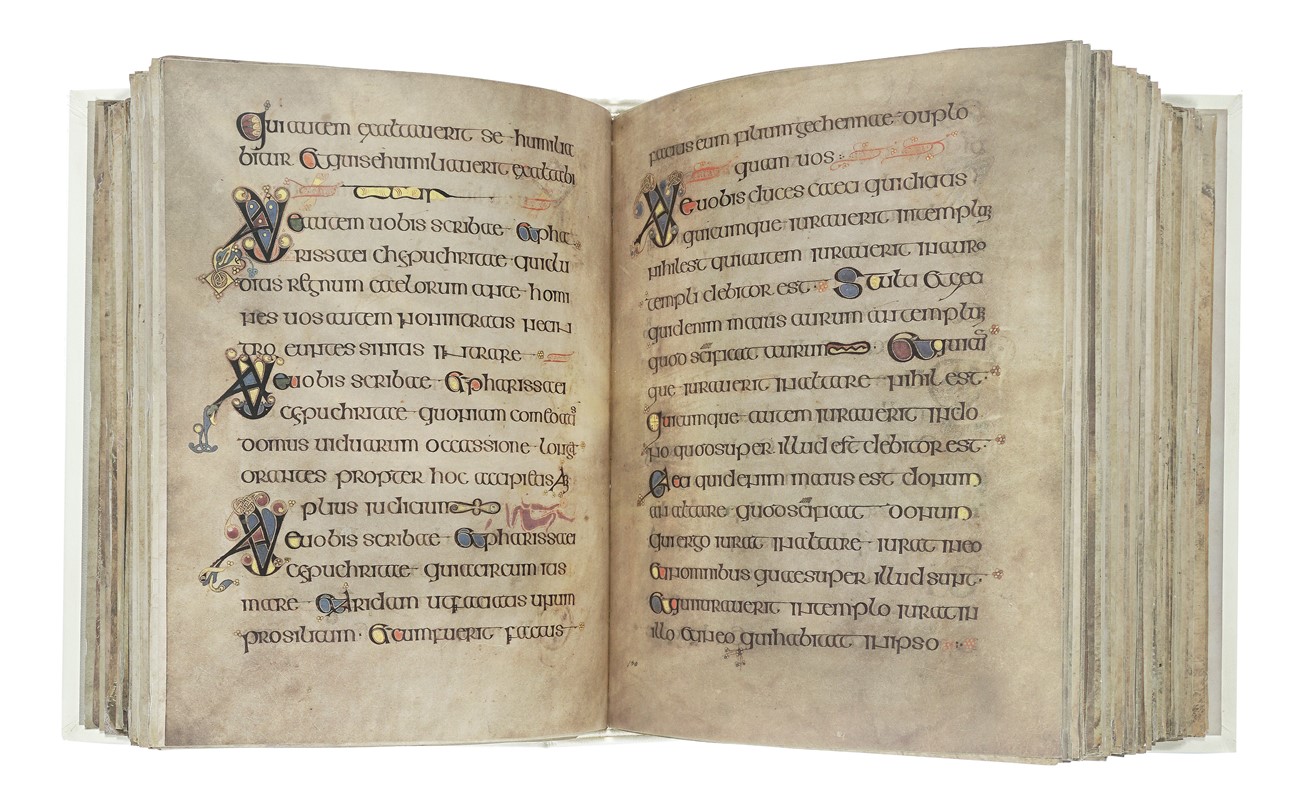 Qui autem exaltauerit se humilia
bitur & qui se humiliauerit exaltabi
Ue autem uobis scribae & pha
rissaei chypuchritae qui clu
ditis regnum caelorum ante homi
nes uos autem non intratis nec in
tro euntes sinitis intrare
Ue uobis scribae & pharissaei
chypuchritae quoniam comeditis
domus uiduarum occassione longa
orantes propter hoc accipietis am
plius iudicium
Ue uobis scribae & pharissaei
chypuchritae quia circum itis
mare & aridam ut faciatis unum
prosilitum & cum fuerit factus
facitis eum filium gechennae duplo
quam uos
Ue uobis duces caeci qui dicitis
quicumque iurauerit in templum
nihil est qui autem iurauerit in auro
templi debitor est Stulti & caeci
quid enim maius aurum an templum
quod scificat aurum & quicum
que iurauerit in altare nihil est
quicumque autem iurauerit in do
no quod super illud est debitor est
Caeci quid enim maius est donum
an altare quod scificat donum
qui ergo iurat in altare iurat in eo
& in omnibus quae super illud sunt
& qui iurauerit in templo iurat in
illo & in eo qui habitat in ipso